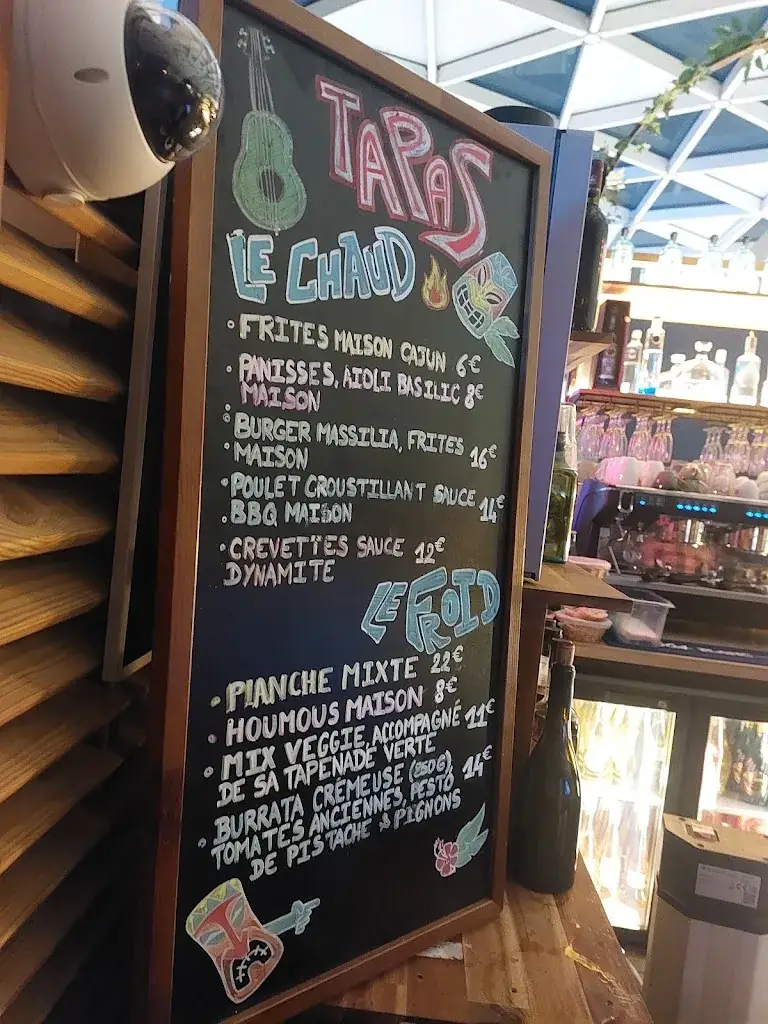 TAPAS
LE CHAUD
• FRITES MAISON CAJUN 6€
• PANISSES, AIOLI BASILIC 8€
MAISON
• BURGER MASSILIA, FRITES 16€
• MAISON
• POULET CROUSTILLANT SAUCE 14€
• BBQ MAISON
• CREVETTES SAUCE 12€
DYNAMITE
LE FROID
• PLANCHE MIXTE 22€
• HOUMOUS MAISON 8€
• MIX VEGGIE ACCOMPAGNÉ 11€
DE SA TAPENADE VERTE
• BURRATA CRÉMEUSE (250G), 14€
TOMATES ANCIENNES, PESTO
DE PISTACHE & PIGNONS